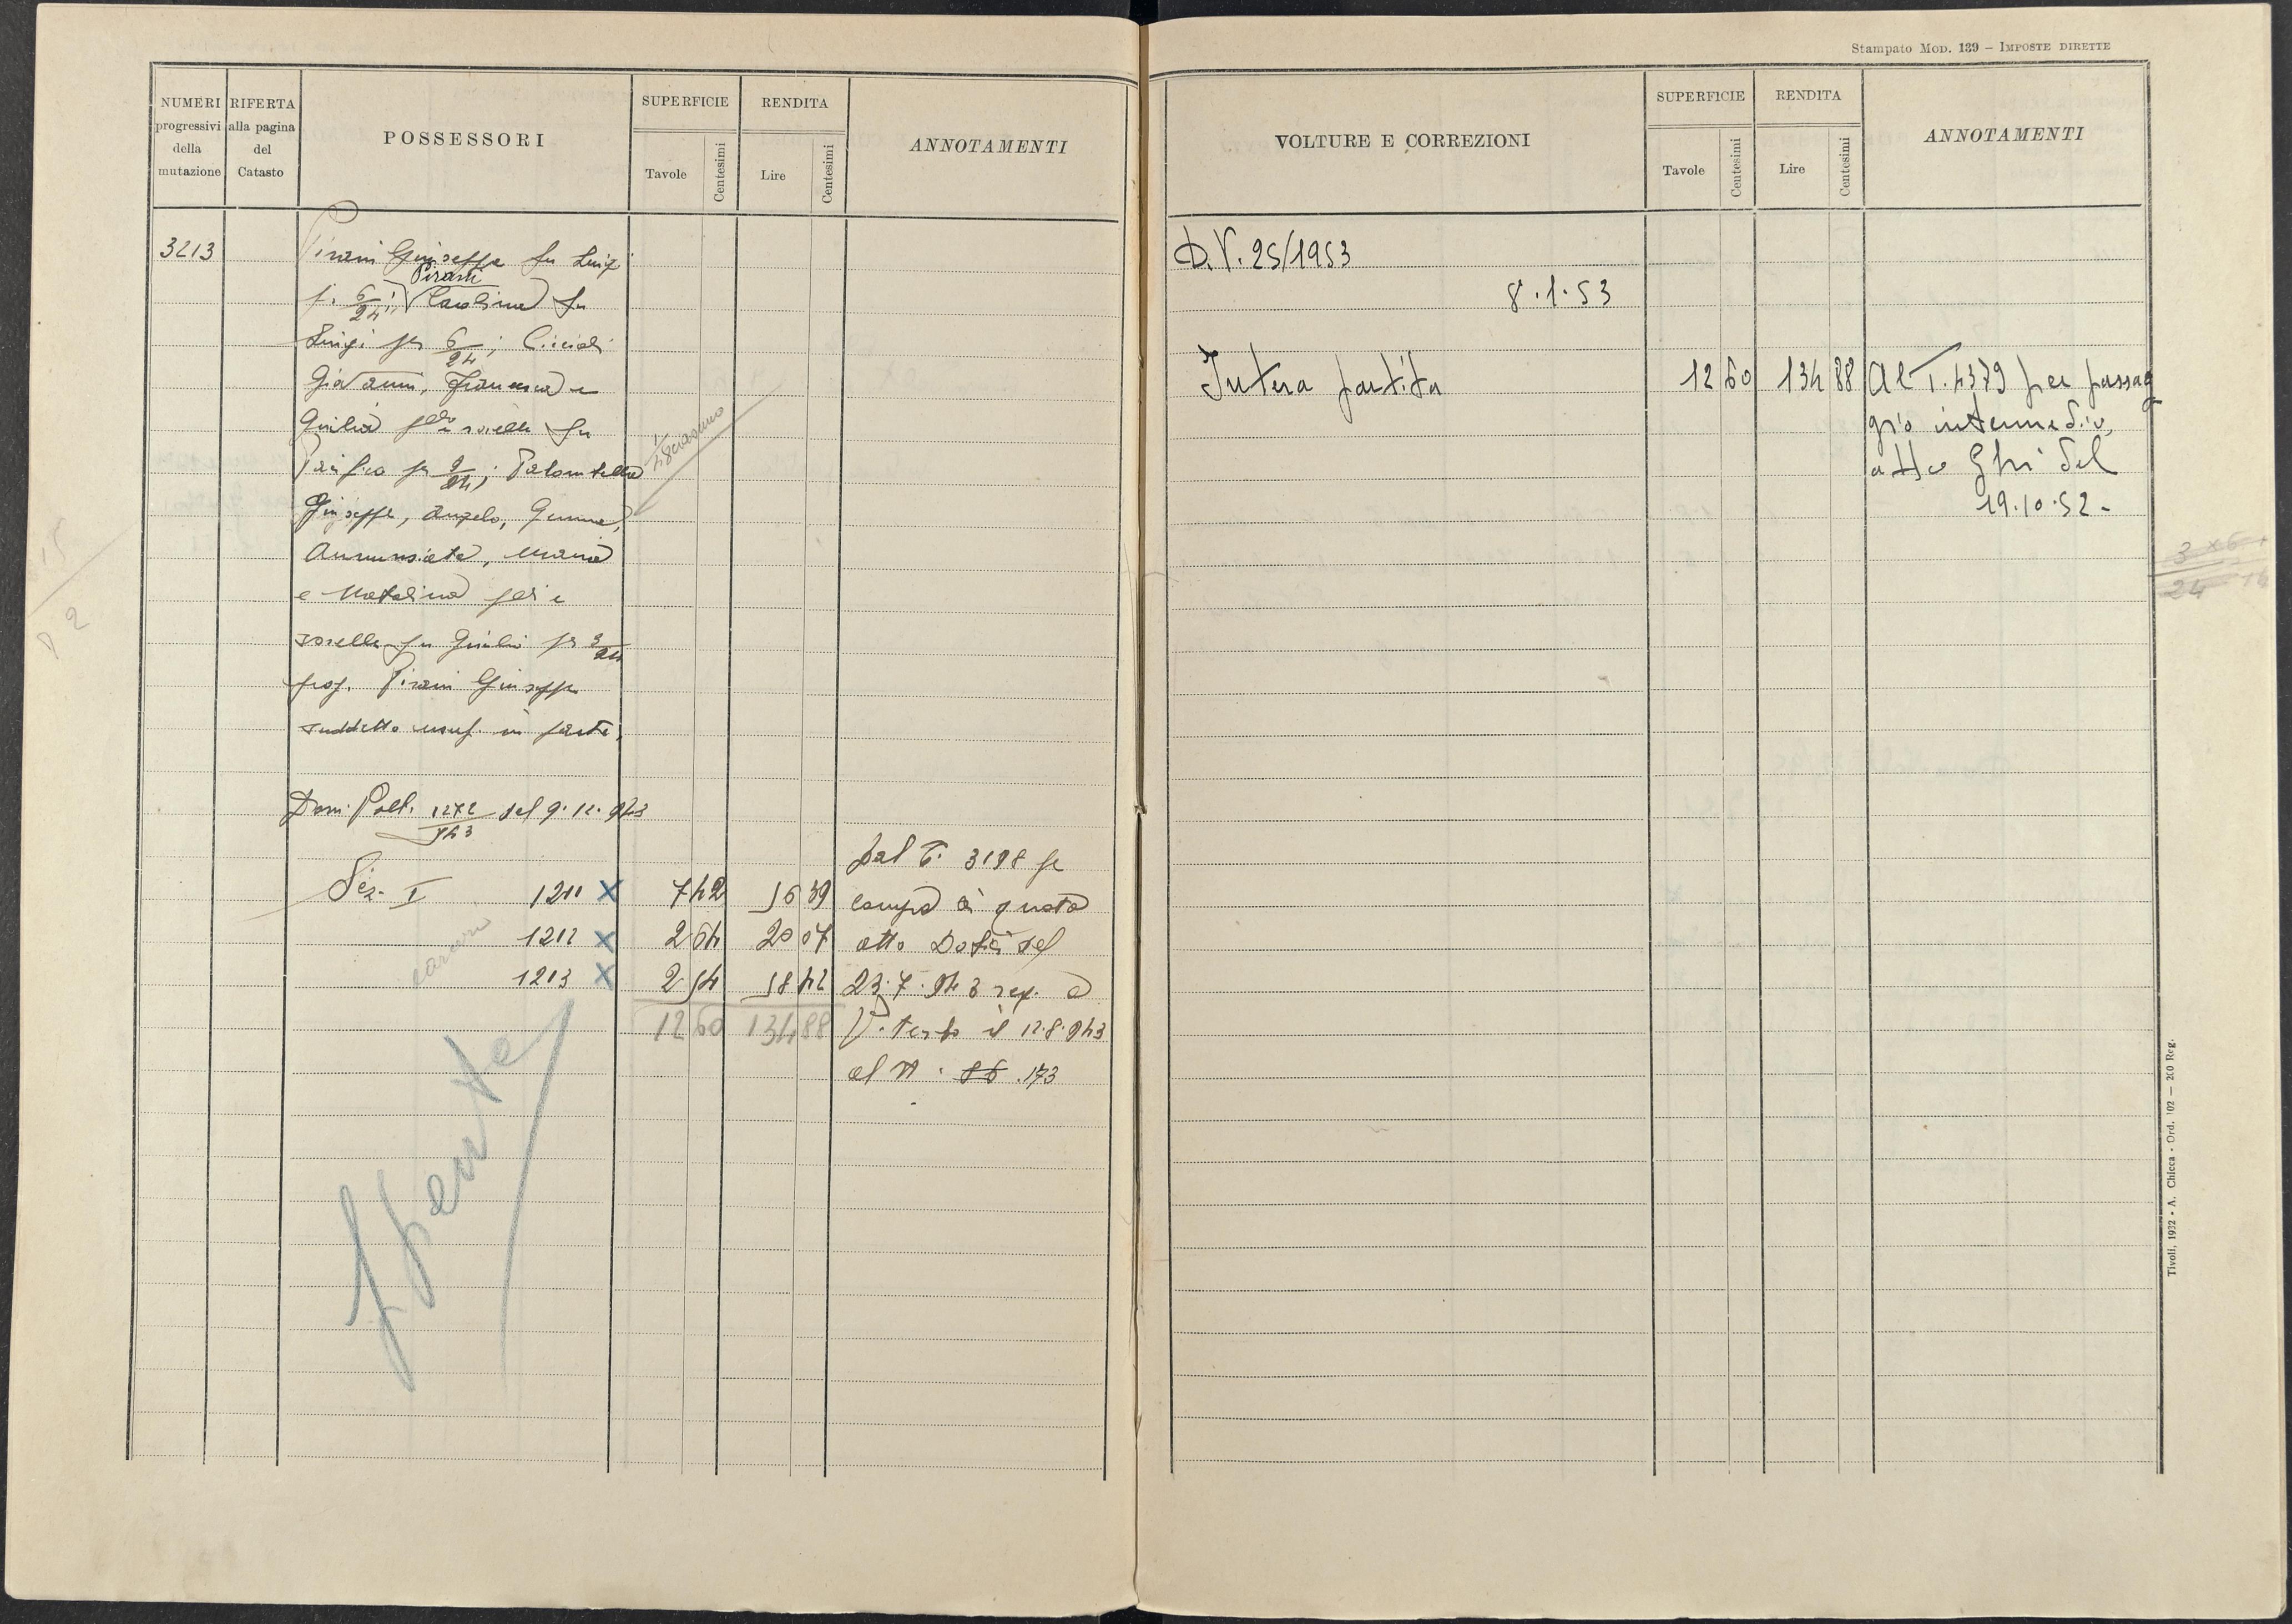 NUMERI progressivi della mutazione
RIFERTA alla pagina del Catasto
POSSESSORI
SUPERFICIE
Tavole
Centesimi
RENDITA
Lire
Centesimi
ANNOTAMENTI
3213
Pirani Giuseppe fu Luigi
Pirani
p. 6/24; Carolina fu
Luigi per 6/24;
Giovanni, Francesca e
Giulia f.lli e sorelle fu
per 9/24; Palombella
Giuseppe, Angelo, Gemma,
Annunziata, Maria
e Natalina f.lli e
sorelle fu Giulio per 3/24
prop. Pirani Giuseppe
suddetto usuf. in parte.
1/48 ciascuno
Dom. Volt. 1272/943 del 9.12.943
Dal T. 3198 per
Sez. I 1211 X 7 42 96 39 compra di quota
1212 X 2 64 20 07 atto del
1213 X 2 54 18 42 23.7.943 reg. a
12 60 134 88 il 12.8.943
al N. 86 .173
Spenta
Stampato MOD. 139 – IMPOSTE DIRETTE
VOLTURE E CORREZIONI
SUPERFICIE
Tavole
Centesimi
RENDITA
Lire
Centesimi
ANNOTAMENTI
D.V. 25/1953
8.1.53
Intera partita 12 60 134 88 Al T. 4379 per passag
gio intermedio,
atto Ghi del
19.10.52.
3 x 6
24
Tivoli, 1932 • A. Chicca - Ord. 102 — 200 Reg.